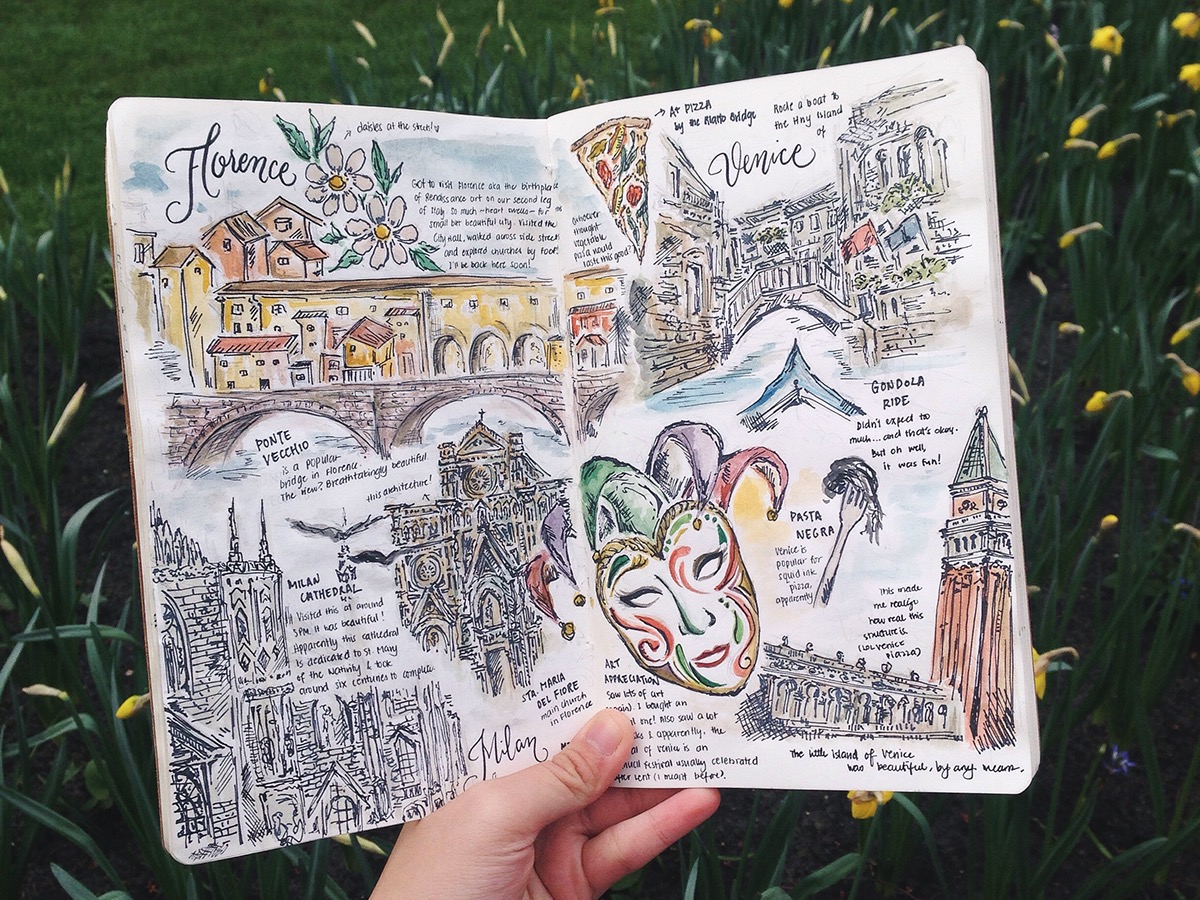 Florence
daisies at the street!
Got to visit Florence aka the birthplace
of Renaissance art on our second leg
of Italy. So much ~heart swells~ for
small but beautiful city. Visited the
City Hall, walked across side street
and explored churches by foot!
I'll be back here soon!
PONTE
VECCHIO
is a popular
bridge in Florence.
The view? Breathtakingly beautiful.
this architecture!
MILAN
CATHEDRAL
Visited this at around
5PM. It was beautiful!
Apparently this cathedral
is dedicated to St. Mary
of the Nativity & took
around six centuries to complete
STA. MARIA
DEL FIORE
main church
in Florence
Milan
At PIZZA
by the Rialto Bridge
Whoever
thought
vegetable
pizza would
taste this good?
Rode a boat to
the tiny island
of
Venice
GONDOLA
RIDE
Didn't expect to
much... and that's okay.
But oh well,
it was fun!
PASTA
NEGRA
Venice is
popular for
squid ink
pizza,
apparently
This made
me realize
how real this
structure is.
piazza)
ART
APPRECIATION
Saw lots of art
again). I bought an
one! Also saw a lot
& apparently, the
of Venice is an
festival usually celebrated
lent (I missed before).
The little island of Venice
was beautiful, by any means.